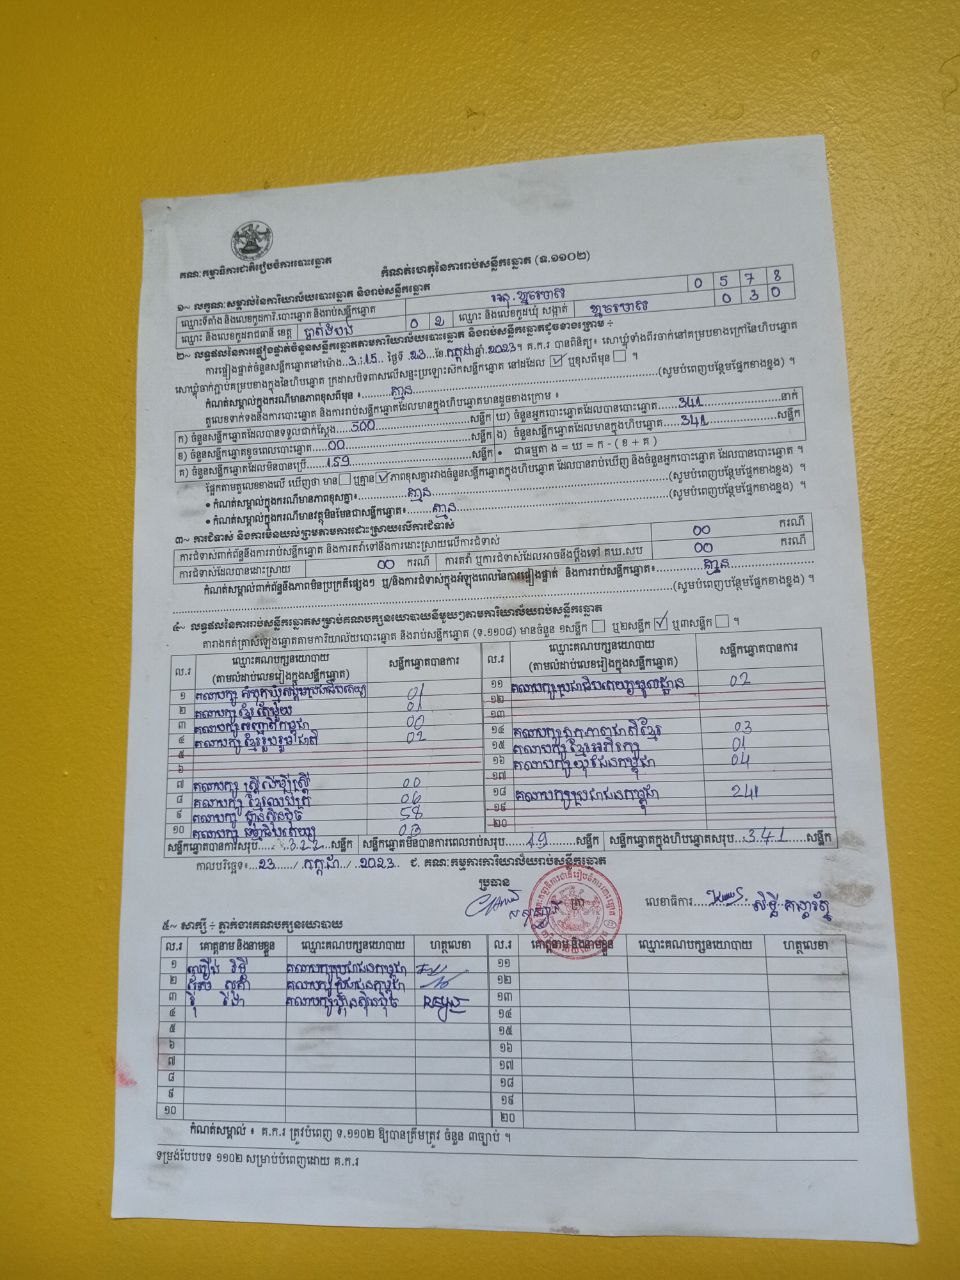 គណៈកម្មាធិការជាតិរៀបចំការបោះឆ្នោត
កំណត់ហេតុនៃការរាប់សន្លឹកឆ្នោត (ទ.១១០២)
១~ លក្ខណៈសម្គាល់នៃការិយាល័យបោះឆ្នោត និងរាប់សន្លឹកឆ្នោត
ឈ្មោះទីតាំង និងលេខកូដការិ.បោះឆ្នោត និងរាប់សន្លឹកឆ្នោត 0 5 7 8
ឈ្មោះ និងលេខកូដរាជធានី ខេត្ត បាត់ដំបង 0 2 ឈ្មោះ និងលេខកូដឃុំ សង្កាត់ 0 3 0
២~ លទ្ធផលនៃការផ្ទៀងផ្ទាត់ចំនួនសន្លឹកឆ្នោតតាមការិយាល័យបោះឆ្នោត និងរាប់សន្លឹកឆ្នោតដូចខាងក្រោម ៖
ការផ្ទៀងផ្ទាត់ចំនួនសន្លឹកឆ្នោតនៅម៉ោង..3:15.. ថ្ងៃទី .23..ខែ.កក្កដា.ឆ្នាំ.2023។ គ.ក.រ បានពិនិត្យ៖ សោឃ្លុំទាំងពីរចាក់គម្របខាងក្រៅនៃហិបឆ្នោត
សោឃ្លុំចាក់ភ្ជាប់គម្របខាងក្នុងនៃហិបឆ្នោត ក្រដាសបិទពាសលើសន្ទះប្រឡោះស៊កសន្លឹកឆ្នោត នៅដដែល ☑ ឬខុសពីមុន ☐ ។
កំណត់សម្គាល់ក្នុងករណីមានភាពខុសពីមុន ៖........គ្មាន........(សូមបំពេញបន្ថែមផ្នែកខាងខ្នង) ។
តួលេខទាក់ទងនឹងការបោះឆ្នោត និងការរាប់សន្លឹកឆ្នោតដែលមានក្នុងហិបឆ្នោតមានដូចខាងក្រោម ៖
ក) ចំនួនសន្លឹកឆ្នោតដែលបានទទួលជាក់ស្តែង....500....សន្លឹក ឃ) ចំនួនអ្នកបោះឆ្នោតដែលបានបោះឆ្នោត....341....នាក់
ខ) ចំនួនសន្លឹកឆ្នោតខូចពេលបោះឆ្នោត....00....សន្លឹក ង) ចំនួនសន្លឹកឆ្នោតដែលមានក្នុងហិបឆ្នោត....341....សន្លឹក
គ) ចំនួនសន្លឹកឆ្នោតដែលមិនបានប្រើ....159....សន្លឹក • ជាធម្មតា ង = ឃ = ក - ( ខ + គ )
ផ្អែកតាមតួលេខខាងលើ ឃើញថា មាន☐ ឬគ្មាន☑ភាពខុសគ្នារវាងចំនួនសន្លឹកឆ្នោតក្នុងហិបឆ្នោត ដែលបានរាប់ឃើញ និងចំនួនអ្នកបោះឆ្នោត ដែលបានបោះឆ្នោត ។
• កំណត់សម្គាល់ក្នុងករណីមានភាពខុសគ្នា៖........គ្មាន........(សូមបំពេញបន្ថែមផ្នែកខាងខ្នង) ។
• កំណត់សម្គាល់ក្នុងករណីមានវត្ថុមិនមែនជាសន្លឹកឆ្នោត៖........គ្មាន........(សូមបំពេញបន្ថែមផ្នែកខាងខ្នង) ។
៣~ ការជំទាស់ និងការមិនយល់ព្រមតាមការដោះស្រាយលើការជំទាស់
ការជំទាស់ពាក់ព័ន្ធនឹងការរាប់សន្លឹកឆ្នោត និងការតវ៉ាទៅនឹងការដោះស្រាយលើការជំទាស់ 00 ករណី
ការជំទាស់ដែលបានដោះស្រាយ 00 ករណី ការតវ៉ា ឬការជំទាស់ដែលអាចនឹងប្តឹងទៅ គឃ.សប 00 ករណី
កំណត់សម្គាល់ពាក់ព័ន្ធនឹងភាពមិនប្រក្រតីផ្សេងៗ ឬ/និងការជំទាស់ក្នុងអំឡុងពេលនៃការផ្ទៀងផ្ទាត់ និងការរាប់សន្លឹកឆ្នោត៖........គ្មាន........
........(សូមបំពេញបន្ថែមផ្នែកខាងខ្នង) ។
៤~ លទ្ធផលនៃការរាប់សន្លឹកឆ្នោតសម្រាប់គណបក្សនយោបាយនីមួយៗតាមការិយាល័យរាប់សន្លឹកឆ្នោត
តារាងកត់ត្រាសំឡេងឆ្នោតតាមការិយាល័យបោះឆ្នោត និងរាប់សន្លឹកឆ្នោត (ទ.១១០៨) មានចំនួន ១សន្លឹក ☐ ឬ២សន្លឹក ☑ ឬ៣សន្លឹក ☐ ។
ល.រ ឈ្មោះគណបក្សនយោបាយ (តាមលំដាប់លេខរៀងក្នុងសន្លឹកឆ្នោត) សន្លឹកឆ្នោតបានការ ល.រ ឈ្មោះគណបក្សនយោបាយ (តាមលំដាប់លេខរៀងក្នុងសន្លឹកឆ្នោត) សន្លឹកឆ្នោតបានការ
១ គណបក្ស សំបុកឃ្មុំសង្គមប្រជាធិបតេយ្យ 01 ១១ គណបក្សប្រជាធិបតេយ្យមូលដ្ឋាន 02
២ គណបក្ស ខ្មែរតែមួយ 01 ១២
៣ គណបក្ស សញ្ជាតិកម្ពុជា 00 ១៣
៤ គណបក្ស ខ្មែររួបរួមជាតិ 02 ១៤ គណបក្សឯកភាពជាតិខ្មែរ 03
៥ ១៥ គណបក្ស ខ្មែរអភិរក្ស 01
៦ ១៦ គណបក្ស យុវជនកម្ពុជា 04
៧ គណបក្ស ស្ត្រីដើម្បីស្ត្រី 00 ១៧
៨ គណបក្ស ខ្មែរឈប់ក្រ 06 ១៨ គណបក្សប្រជាជនកម្ពុជា 241
៩ គណបក្ស ហ្វ៊ុនស៊ិនប៉ិច 58 ១៩
១០ គណបក្ស ធម្មាធិបតេយ្យ 03 ២០
សន្លឹកឆ្នោតបានការសរុប....322..សន្លឹក សន្លឹកឆ្នោតមិនបានការពេលរាប់សរុប....19....សន្លឹក សន្លឹកឆ្នោតក្នុងហិបឆ្នោតសរុប...341....សន្លឹក
កាលបរិច្ឆេទ៖...23..../ កក្កដា../ ..2023.. ជ. គណៈកម្មការការិយាល័យរាប់សន្លឹកឆ្នោត
ប្រធាន
លេខាធិការ
៥~ សាក្សី ៖ ភ្នាក់ងារគណបក្សនយោបាយ
ល.រ គោត្តនាម និងនាមខ្លួន ឈ្មោះគណបក្សនយោបាយ ហត្ថលេខា ល.រ គោត្តនាម និងនាមខ្លួន ឈ្មោះគណបក្សនយោបាយ ហត្ថលេខា
១ គណបក្សប្រជាជនកម្ពុជា ១១
២ គណបក្ស ប្រជាជនកម្ពុជា ១២
៣ គណបក្សហ្វ៊ុនស៊ិនប៉ិច ១៣
៤ ១៤
៥ ១៥
៦ ១៦
៧ ១៧
៨ ១៨
៩ ១៩
១០ ២០
កំណត់សម្គាល់ ៖ គ.ក.រ ត្រូវបំពេញ ទ.១១០២ ឱ្យបានត្រឹមត្រូវ ចំនួន ៣ច្បាប់ ។
ទម្រង់បែបបទ ១១០២ សម្រាប់បំពេញដោយ គ.ក.រ